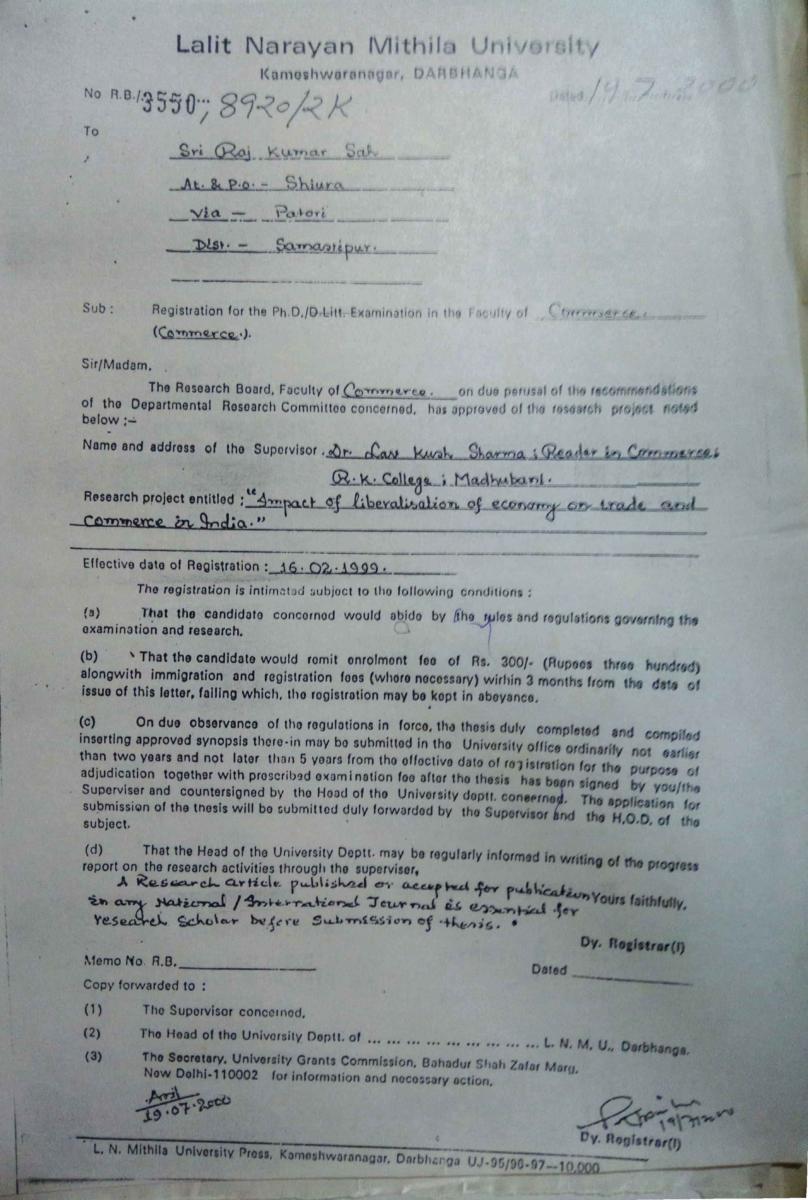 Lalit Narayan Mithila University
Kameshwaranagar, DARBHANGA
No R.B./3550; 8920/2K Dated 19.7.2000
To
Sri Raj Kumar Sah
At. & P.o. - Shiura
Via - Patori
Dist. - Samastipur.
Sub : Registration for the Ph.D./D-Litt-Examination in the Faculty of Commerce.
(Commerce.).
Sir/Madam,
The Research Board, Faculty of Commerce. on due perusal of the recommendations
of the Departmental Research Committee concerned, has approved of the research project noted
below ;—
Name and address of the Supervisor . Dr. Lav Kush Sharma ; Reader in Commerce;
R.K. College ; Madhubani.
Research project entitled : "Impact of liberalisation of economy on trade and
commerce in India."
Effective date of Registration : 16.02.1999.
The registration is intimated subject to the following conditions :
(a) That the candidate concerned would abide by the rules and regulations governing the
examination and research.
(b) That the candidate would remit enrolment fee of Rs. 300/- (Rupees three hundred)
alongwith immigration and registration fees (where necessary) within 3 months from the date of
issue of this letter, failing which, the registration may be kept in abeyance.
(c) On due observance of the regulations in force, the thesis duly completed and compiled
inserting approved synopsis there-in may be submitted in the University office ordinarily not earlier
than two years and not later than 5 years from the effective date of registration for the purpose of
adjudication together with prescribed examination fee after the thesis has been signed by you/the
Superviser and countersigned by the Head of the University deptt. concerned. The application for
submission of the thesis will be submitted duly forwarded by the Supervisor and the H.O.D. of the
subject.
(d) That the Head of the University Deptt. may be regularly informed in writing of the progress
report on the research activities through the superviser,
A Research article published or accepted for publication Yours faithfully,
in any National / International Journal is essential for
research Scholar before Submission of thesis.
Dy. Registrar(I)
Memo No. R.B. Dated
Copy forwarded to :
(1) The Supervisor concerned,
(2) The Head of the University Deptt. of ... ... ... ... ... ... ... ... ... ... L. N. M. U., Darbhanga.
(3) The Secretary, University Grants Commission, Bahadur Shah Zafar Marg,
New Delhi-110002 for information and necessary action,
19.07.2000
19/7/2000
Dy. Registrar(I)
L. N. Mithila University Press, Kameshwaranagar, Darbhanga UJ-95/96-97--10,000